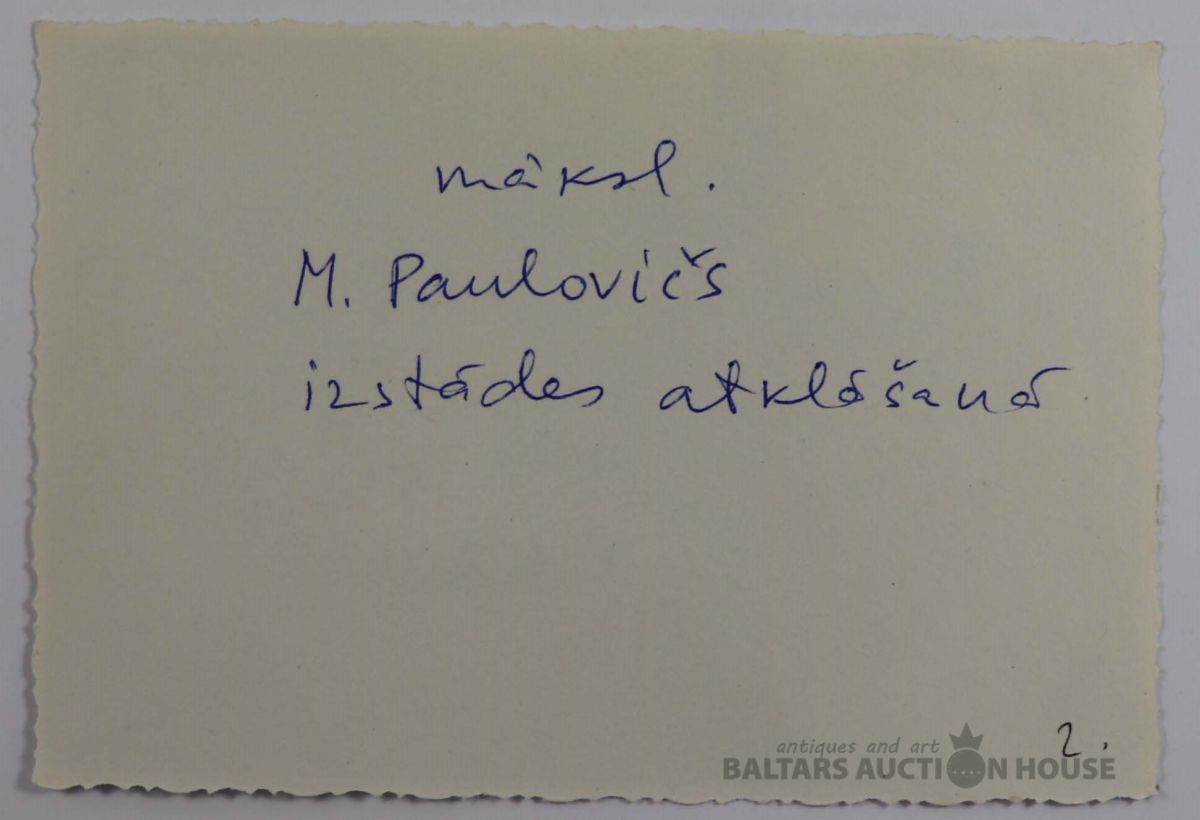 māksl.
M. Paulovičs
izstādes atklāšanā
2.
antiques and art
BALTARS AUCTION HOUSE